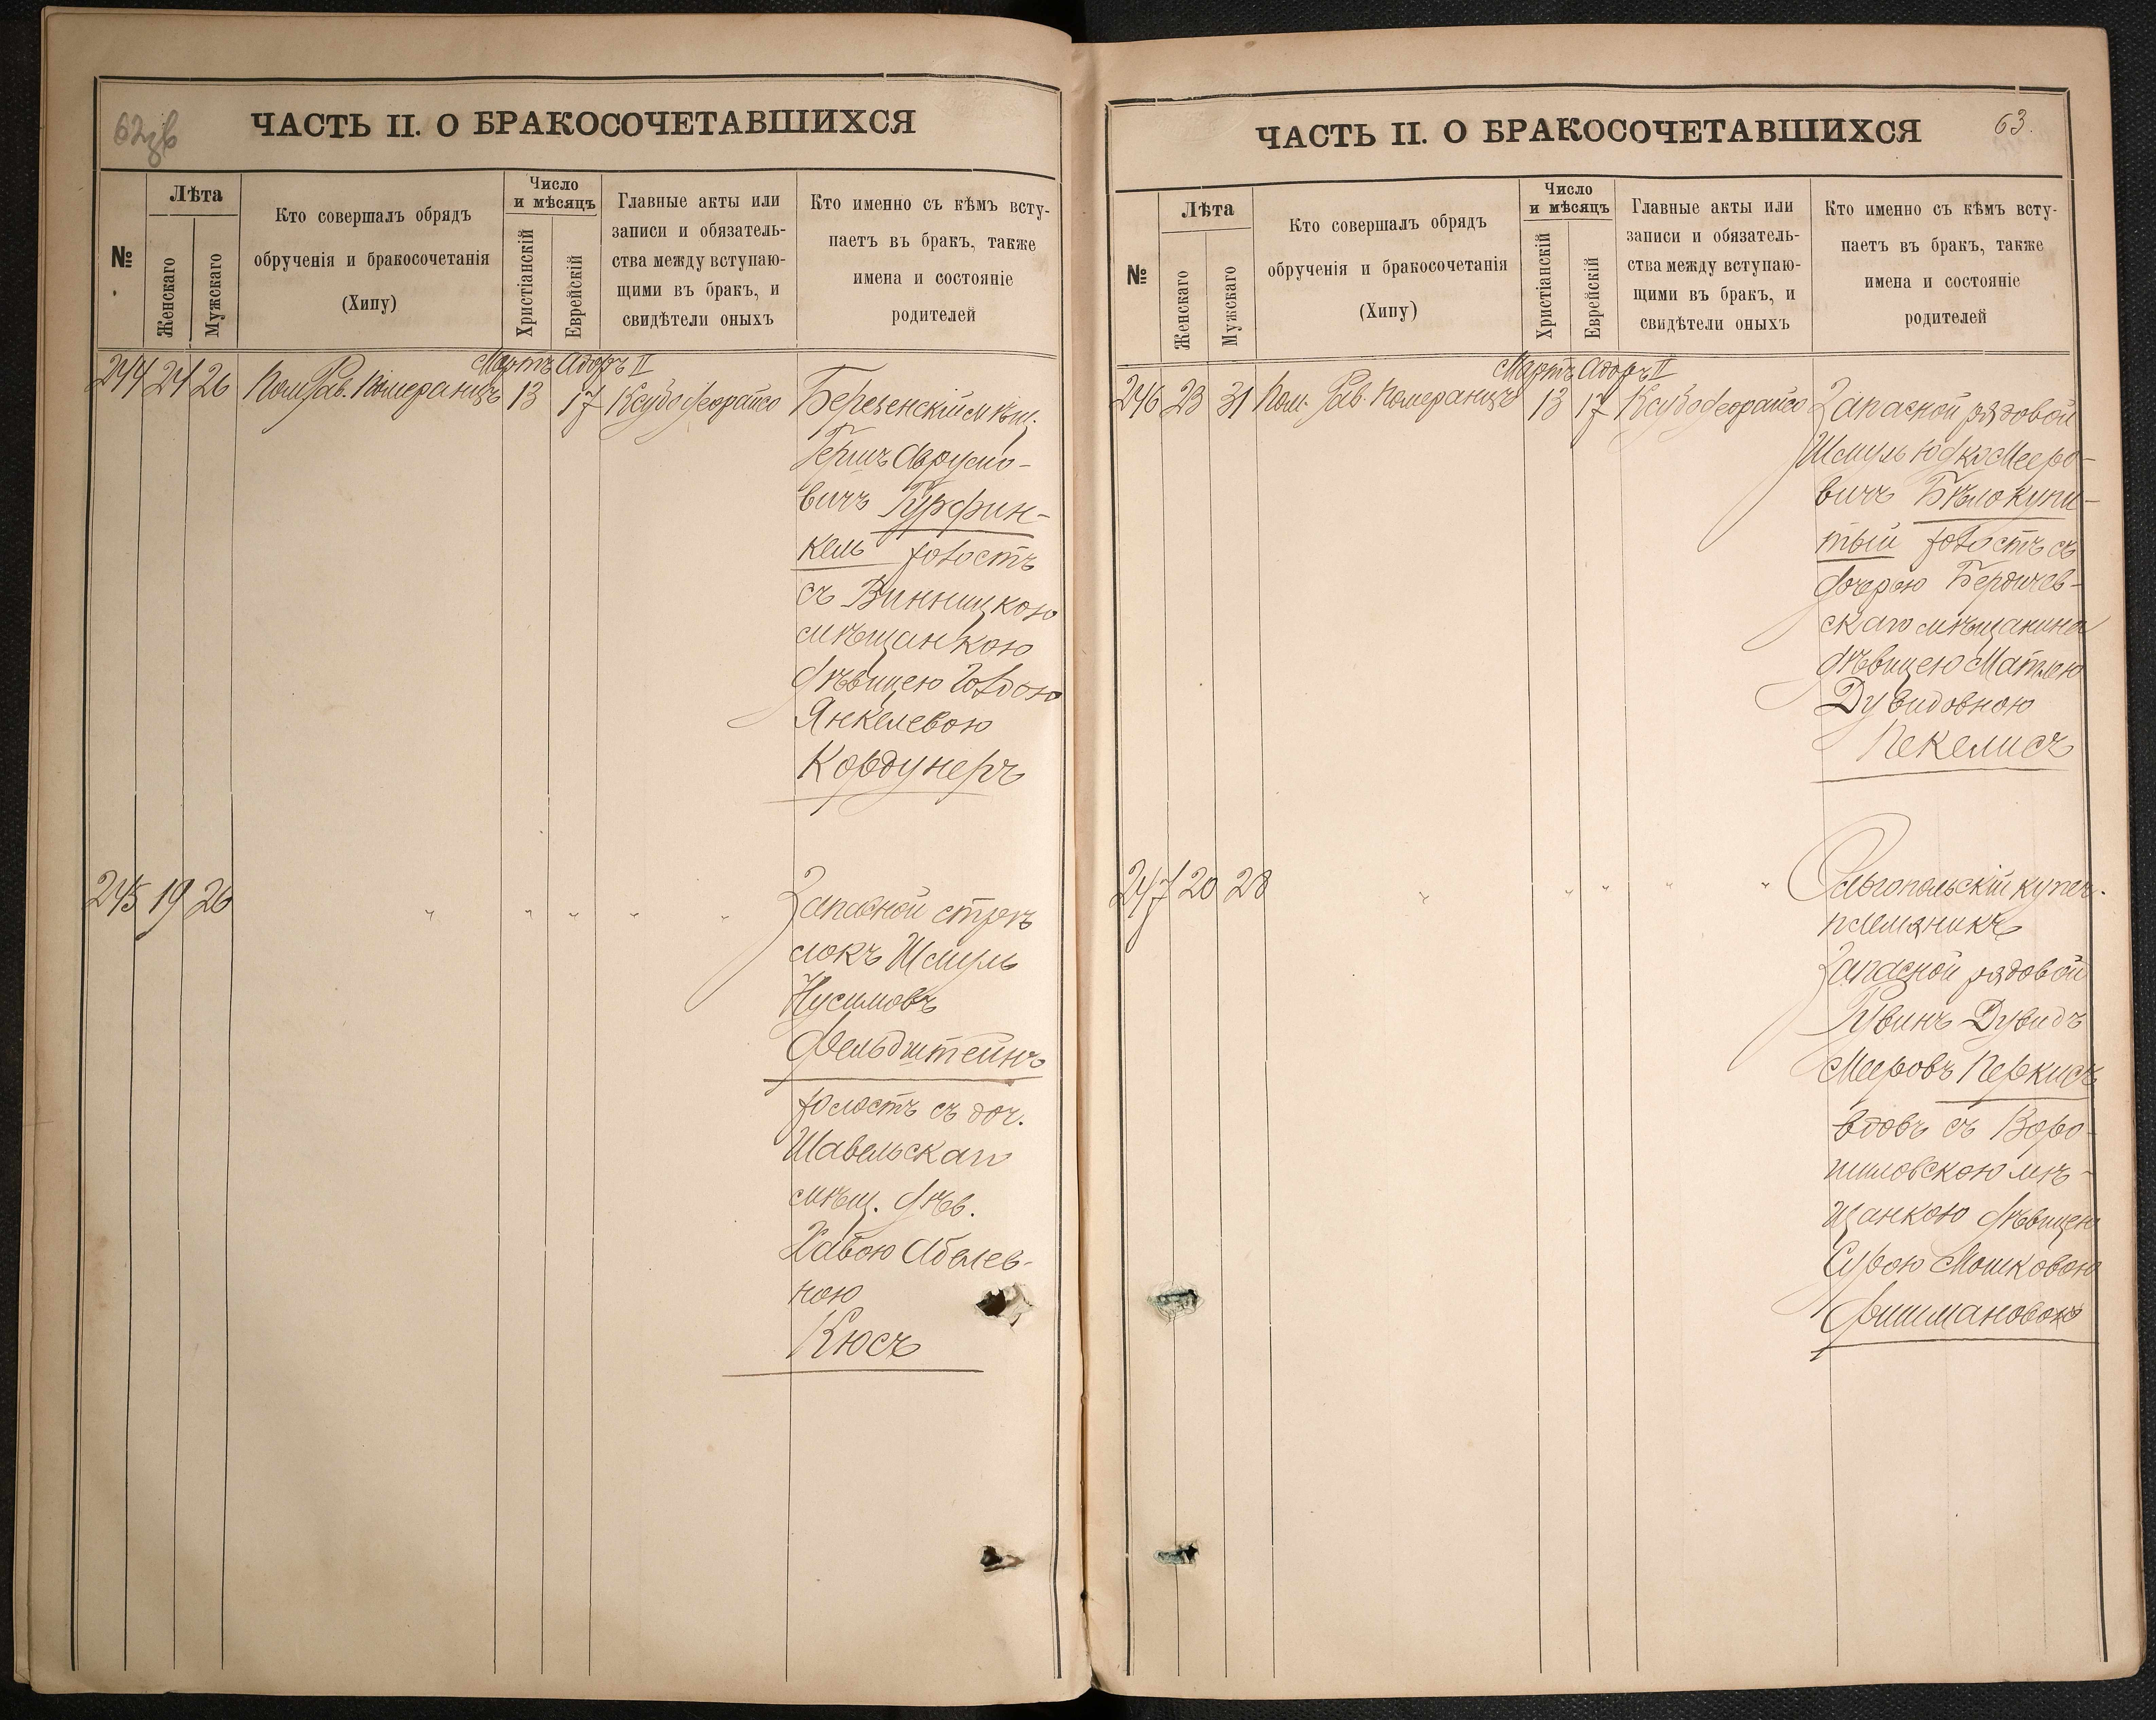 62зв
ЧАСТЬ II. О БРАКОСОЧЕТАВШИХСЯ
№
Лѣта
Женскаго
Мужскаго
Кто совершалъ обрядъ
обрученія и бракосочетанія
(Хипу)
Число
и мѣсяцъ
Христіанскій
Еврейскій
Главные акты или
записи и обязатель-
ства между вступаю-
щими въ бракъ, и
свидѣтели оныхъ
Кто именно съ кѣмъ всту-
паетъ въ бракъ, также
имена и состояніе
родителей
Мартъ Адоръ II
244 21 26 Пом. Рав. Померанцъ 13 17 Ксубо
Березенскій мѣщ.
Гершъ Авრумо-
вичъ Гурфин-
кель холостъ
съ Винницкою
мѣщанкою
дѣвицею Голдою
Янкелевою
Кордунеръ
245 19 26 " " " " "
Запасной стрѣ
локъ Шмуль
Нусимовъ
Фельдштейнъ
холостъ съ доч.
Шавельскаго
мѣщ. дѣв.
Хавою Абелев-
ною
Кюсъ
63.
ЧАСТЬ II. О БРАКОСОЧЕТАВШИХСЯ
№
Лѣта
Женскаго
Мужскаго
Кто совершалъ обрядъ
обрученія и бракосочетанія
(Хипу)
Число
и мѣсяцъ
Христіанскій
Еврейскій
Главные акты или
записи и обязатель-
ства между вступаю-
щими въ бракъ, и
свидѣтели оныхъ
Кто именно съ кѣмъ всту-
паетъ въ бракъ, также
имена и состояніе
родителей
Мартъ Адоръ II
246 23 31 Пом. Рав. Померанцъ 13 17 Ксубо
Запасной рядовой
Шмуль Юдко Мееро-
вичъ Бѣлокупи-
тый холостъ съ
дочерью Бердичев-
скаго мѣщанина
дѣвицею Матлею
Дувидовною
Пекелисъ
247 20 28 " " " " "
Ольгопольскій купеч.
племяникъ
Запасной рядовой
Рувинъ Дувидъ
Мееровъ Перкисъ
вдовъ съ Воро-
шиловскою мѣ-
щанкою дѣвицею
Сурою Мошковою
Фишмановою